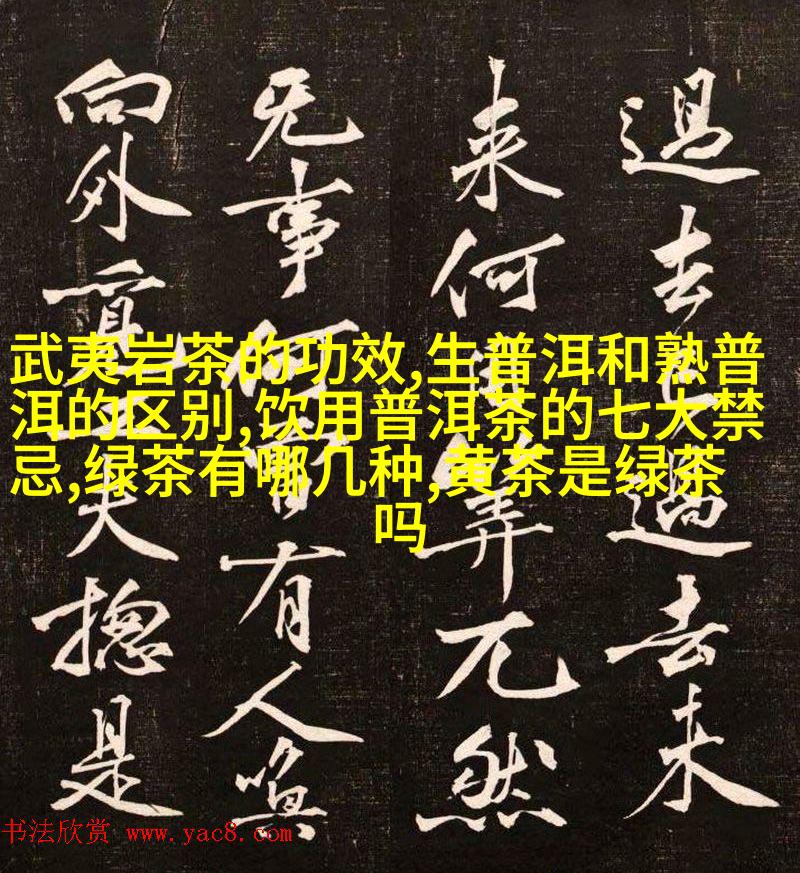 過去過去未
来何筭兀然
无事何曾有人喚
向外覓夫摠是
武夷岩茶的功效,生普洱和熟普
洱的区别,饮用普洱茶的七大禁
忌,绿茶有哪几种,黄茶是绿茶
吗
书法欣赏 www.yac8.com